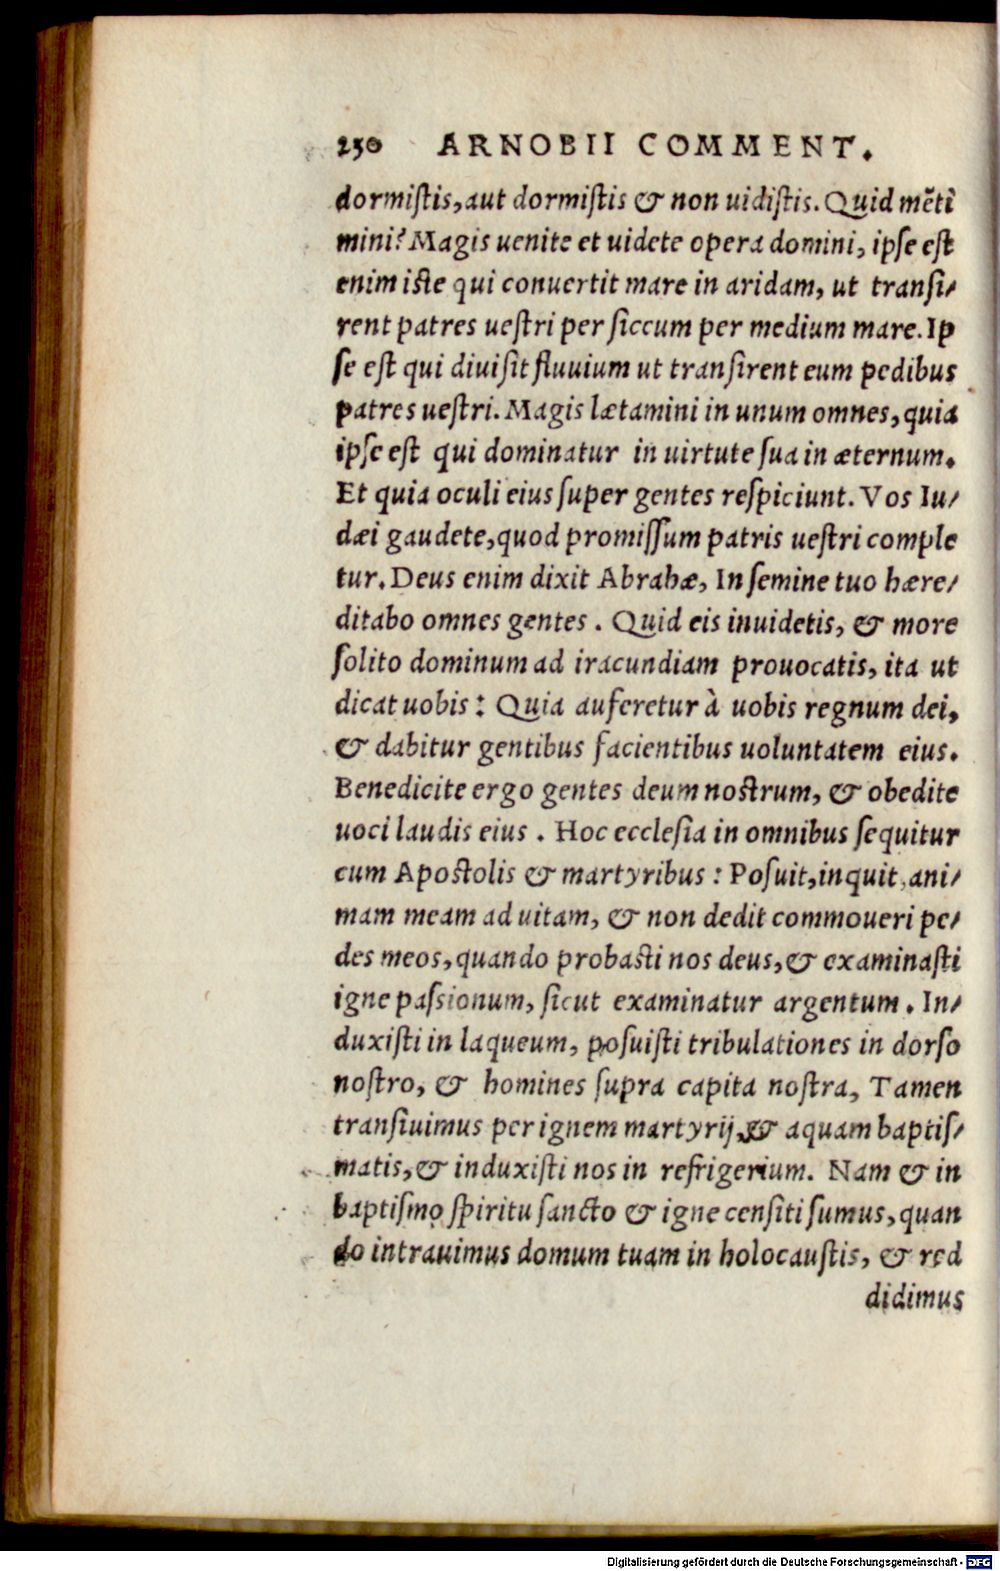 250 ARNOBII COMMENT.
dormistis, aut dormistis & non uidistis. Quid mẽtî
mini? Magis uenite et uidete opera domini, ipse est
enim iste qui conuertit mare in aridam, ut transi/
rent patres uestri per siccum per medium mare. Ip
se est qui diuisit fluuium ut transirent eum pedibus
patres uestri. Magis lætamini in unum omnes, quia
ipse est qui dominatur in uirtute sua in æternum.
Et quia oculi eius super gentes respiciunt. Vos Iu/
dæi gaudete, quod promissum patris uestri comple
tur. Deus enim dixit Abrahæ, In semine tuo hære/
ditabo omnes gentes . Quid eis inuidetis, & more
solito dominum ad iracundiam prouocatis, ita ut
dicat uobis: Quia auferetur à uobis regnum dei,
& dabitur gentibus facientibus uoluntatem eius.
Benedicite ergo gentes deum nostrum, & obedite
uoci laudis eius . Hoc ecclesia in omnibus sequitur
cum Apostolis & martyribus : Posuit, inquit, ani/
mam meam ad uitam, & non dedit commoueri pe/
des meos, quando probasti nos deus, & examinasti
igne passionum, sicut examinatur argentum . In/
duxisti in laqueum, posuisti tribulationes in dorso
nostro, & homines supra capita nostra, Tamen
transiuimus per ignem martyrij, & aquam baptis/
matis, & induxisti nos in refrigerium. Nam & in
baptismo spiritu sancto & igne censiti sumus, quan
do intrauimus domum tuam in holocaustis, & red
didimus
Digitalisierung gefördert durch die Deutsche Forschungsgemeinschaft - DFG